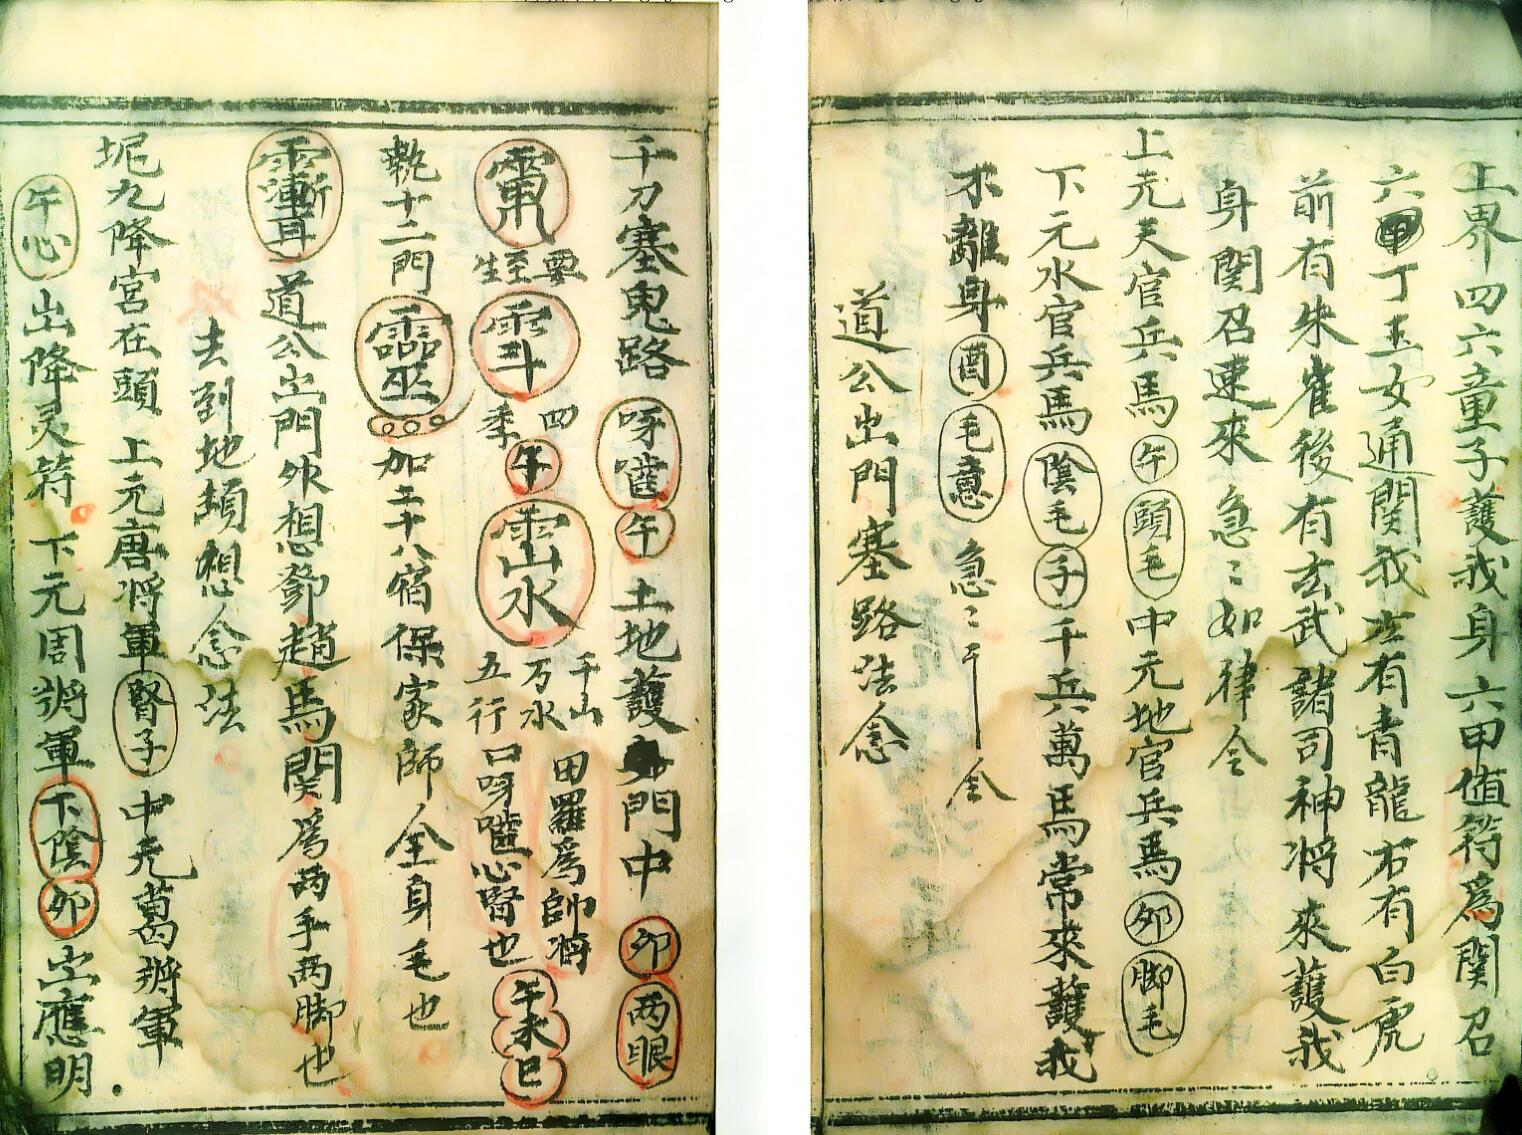 上界四六童子護我身六甲值符為関召
六甲丁玉女通関我左有青龍右有白虎
前有朱雀後有玄武諸司神將來護我
身関召速來急〻如律令
上元天官兵馬午頭毛中元地官兵馬卯脚毛
下元水官兵馬陰毛子千兵萬馬常來護我
不離身酉毛意急〻令
道公出門塞路法念
千刀塞鬼路呀𪘁午土地護身門中卯两眼
要至生四季午千山万水五行田羅為帥將口呀心腎也午未巳
執十二門加二十八宿保家師全身毛也
道公出門外想鄧趙馬関為两手两脚也
去到地頭想念法
坭九降宮在頭上元唐將軍腎子中元葛將軍
午心出降灵符下元周將軍下陰卯出應明